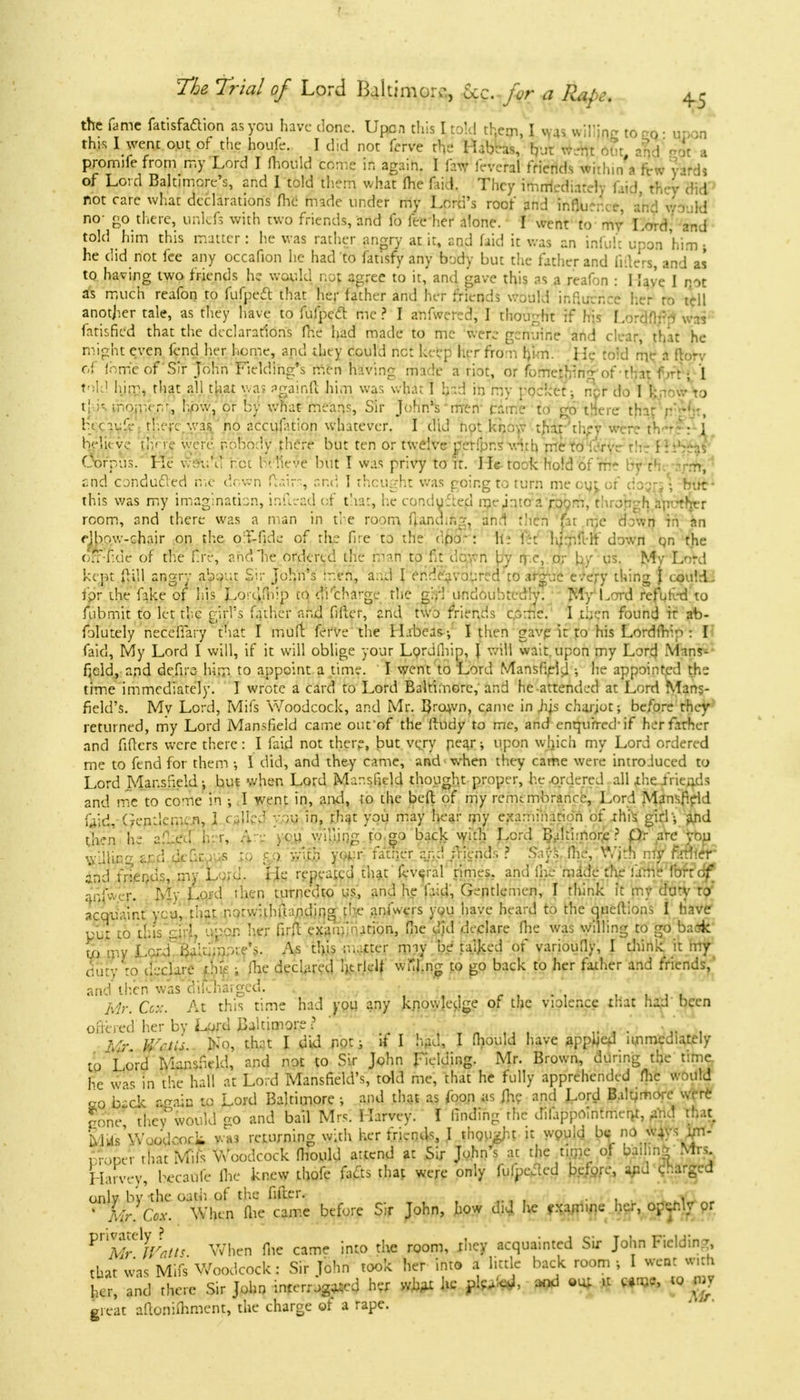 The Trial of Lord Baltimore, &c. for a Rape. 45
the ſame ſatisfaction as you have done. Upon this I told them, I was willing to go; upon
this I went out of the houſe. I did not ſerve the Habeas, but went out, and got a
promiſe from my Lord I ſhould come in again. I ſaw ſeveral friends within a few yards
of Lord Baltimore's, and I told them what ſhe ſaid. They immediately ſaid, they did
not care what declarations ſhe made under my Lord's roof and influence, and would
no· go there, unleſs with two friends, and ſo ſee her alone. I went to my Lord, and
told him this matter: he was rather angry at it, and ſaid it was an inſult upon him;
he did not ſee any occaſion he had to ſatisfy any body but the father and ſiſters, and as
to having two friends he would not agree to it, and gave this as a reaſon: Have I not
as much reaſon to ſuſpect that her father and her friends would influence her to tell
another tale, as they have to ſuſpect me? I anſwered, I thought if his Lordſhip was
ſatisfied that the declarations ſhe had made to me were genuine and clear, that he
might even ſend her home, and they could not keep her from him. He told me a ſtory
of ſome of Sir John Fielding's men having made a riot, or ſomething of that ſort; I
told him, that all that was againſt him was what I had in my pocket; nor do I know to
this moment, how, or by what means, Sir John's men came to go there that night,
becauſe, there was no accuſation whatever. I did not know that they were there; I
believe there were nobody there but ten or twelve perſons with me to ſerve the Habeas
Corpus. He wou'd not believe but I was privy to it. He took hold of me by the arm,
and conducted me down ſtairs, and I thought was going to turn me out of doors; but
this was my imagination, inſtead of that, he conducted me into a room, through another
room, and there was a man in the room ſtanding, and then ſat me down in an
elbow-chair on the off-ſide of the fire to the door: he ſet himſelf down on the
off-ſide of the fire, and he ordered the man to ſit down by me, or by us. My Lord
kept ſtill angry about Sir John's men, and I endeavoured to argue every thing I could
for the ſake of his Lordſhip to diſcharge the girl undoubtedly. My Lord refuſed to
ſubmit to let the girl's father and ſiſter, and two friends come. I then found it ab-
ſolutely neceſſary that I muſt ſerve the Habeas; I then gave it to his Lordſhip: I
ſaid, My Lord I will, if it will oblige your Lordſhip, I will wait upon my Lord Mans-
field, and deſire him to appoint a time. I went to Lord Mansfield; he appointed the
time immediately. I wrote a card to Lord Baltimore, and he attended at Lord Mans-
field's. My Lord, Miſs Woodcock, and Mr. Brown, came in his chariot; before they
returned, my Lord Mansfield came out of the ſtudy to me, and enquired if her father
and ſiſters were there: I ſaid not there, but very near; upon which my Lord ordered
me to ſend for them; I did, and they came, and when they came were introduced to
Lord Mansfield; but when Lord Mansfield thought proper, he ordered all the friends
and me to come in; I went in, and, to the beſt of my remembrance, Lord Mansfield
ſaid, Gentlemen, I called you in, that you may hear my examination of this girl; and
then he aſked her, Are you willing to go back with Lord Baltimore? Or are you
willing and deſirous to go with your father and friends? Says ſhe, With my father
and friends, my Lord. He repeated that ſeveral times, and ſhe made the ſame ſort of
anſwer. My Lord then turned to us, and he ſaid, Gentlemen, I think it my duty to
acquaint you, that notwithſtanding the anſwers you have heard to the queſtions I have
put to this girl, upon her firſt examination, ſhe did declare ſhe was willing to go back
to my Lord Baltimore's. As this matter may be talked of variouſly, I think it my
duty to declare this; ſhe declared herſelf willing to go back to her father and friends,
and then was diſcharged.
Mr. Cox. At this time had you any knowledge of the violence that had been
offered her by Lord Baltimore?
Mr. Watts. No, that I did not; if I had, I ſhould have applied immediately
to Lord Mansfield, and not to Sir John Fielding. Mr. Brown, during the time
he was in the hall at Lord Mansfield's, told me, that he fully apprehended ſhe would
go back again to Lord Baltimore; and that as ſoon as ſhe and Lord Baltimore were
gone, they would go and bail Mrs. Harvey. I finding the diſappointment, and that
Miſs Woodcock was returning with her friends, I thought it would be no ways im-
proper that Miſs Woodcock ſhould attend at Sir John's at the time of bailing Mrs.
Harvey, becauſe ſhe knew thoſe facts that were only ſuſpected before, and charged
only by the oath of the ſiſter.
Mr. Cox. When ſhe came before Sir John, how did he examine her, openly or
privately?
Mr. Watts. When ſhe came into the room, they acquainted Sir John Fielding,
that was Miſs Woodcock: Sir John took her into a little back room; I went with
her, and there Sir John interrogated her what he pleaſed, and out it came, to my
great aſtoniſhment, the charge of a rape.
Mr.